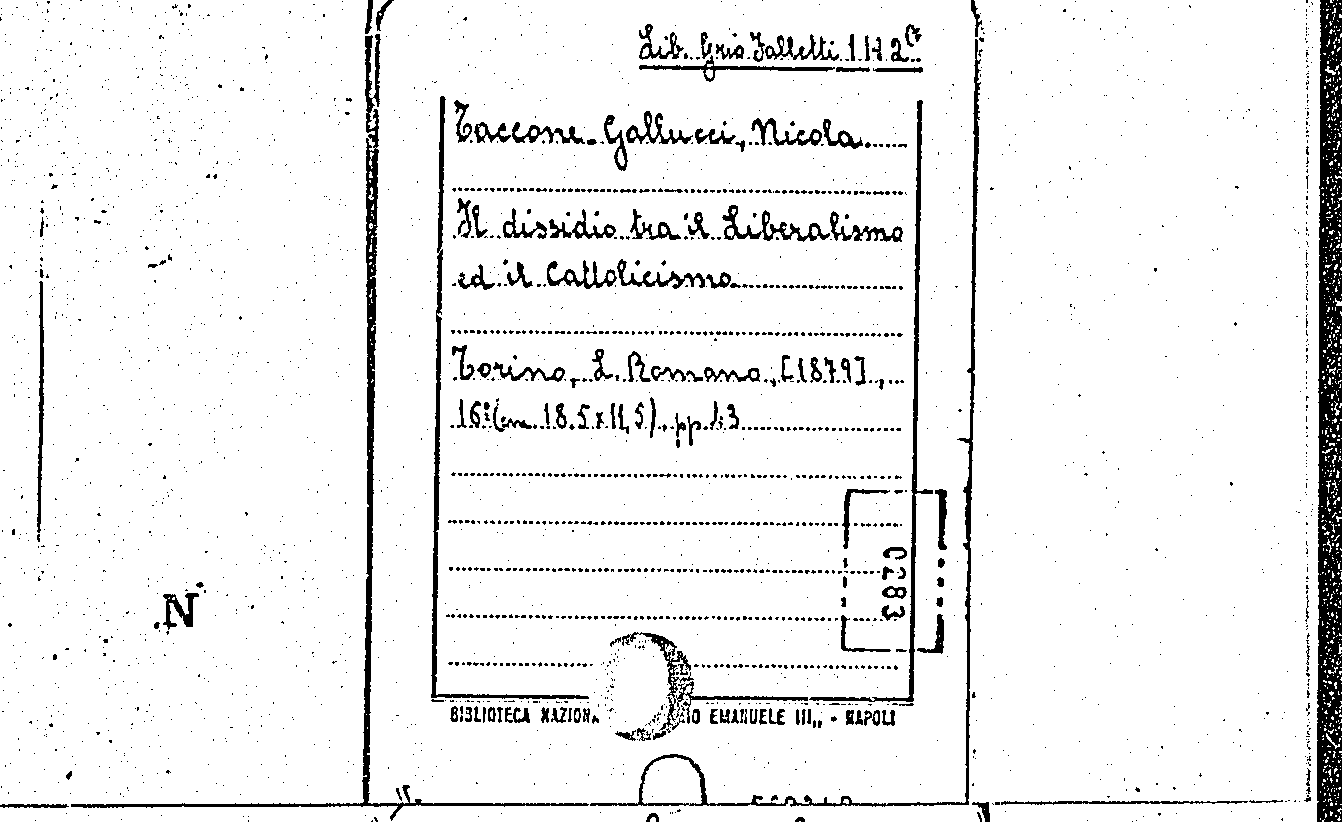 Lib. Grio Falletti 1 H 2
Taccone-Gallucci, Nicola.
Il dissidio tra il Liberalismo
ed il Cattolicismo
Torino, L. Romano, [1879],
16° (cm. 18.5 x 11,5), pp.
0283
N
BIBLIOTECA NAZION IO EMANUELE III,, - NAPOLI